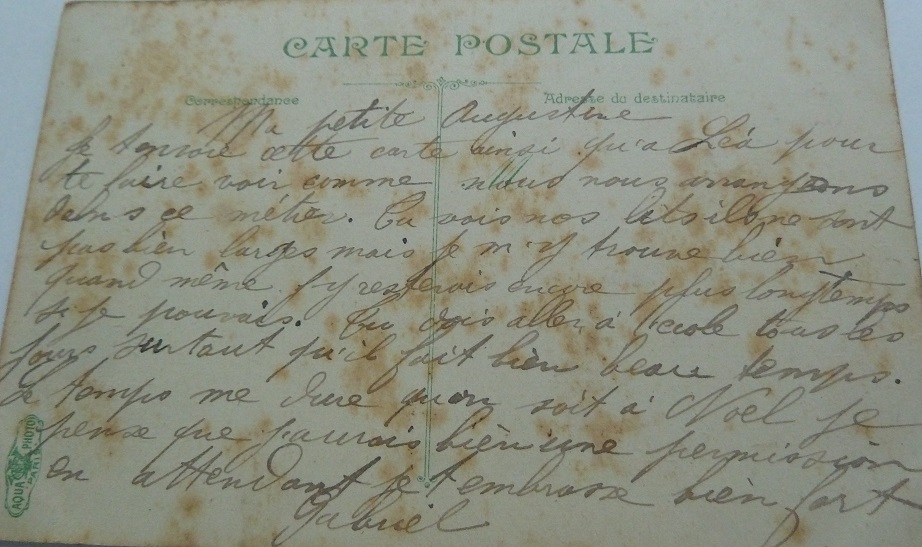 CARTE POSTALE
Correspondance
Adresse du destinataire
Ma petite Augustine
Je t'envoie cette carte ainsi qu'a Léa pour
te faire voir comme nous nous arrangeons
dans ce métier. Tu vois nos lits ils ne sont
pas bien larges mais je m'y trouve bien
quand même j'y resterais encore plus longtemps
si je pouvais. Tu dois aller à l'école tous les
jours surtout qu'il fait bien beau temps.
Le temps me dure qu'on soit à Noël je
pense que j'aurais bien une permission
en attendant je t'embrasse bien fort
Gabriel
AQUA PHOTO
PARIS